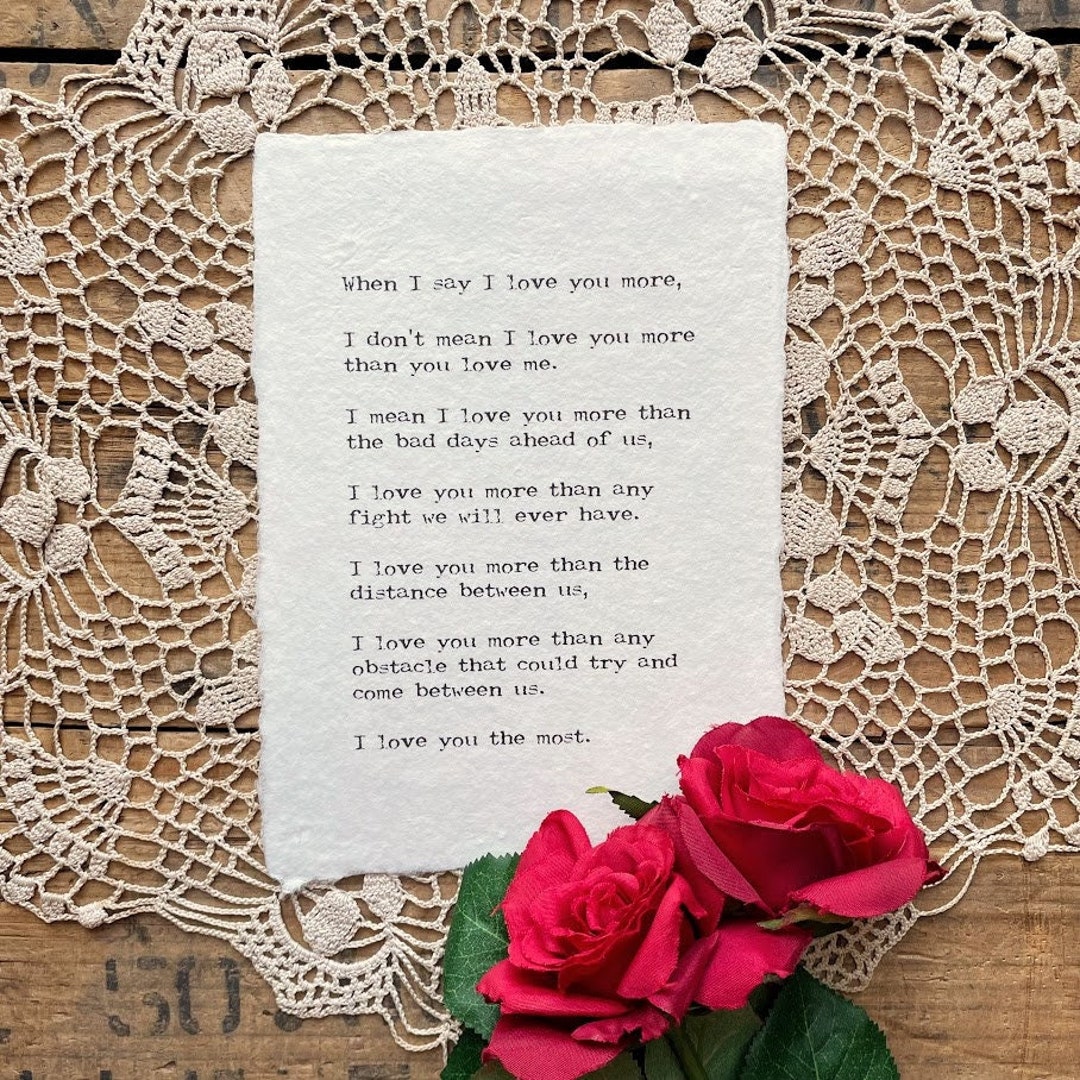 When I say I love you more,
I don't mean I love you more
than you love me.
I mean I love you more than
the bad days ahead of us,
I love you more than any
fight we will ever have.
I love you more than the
distance between us,
I love you more than any
obstacle that could try and
come between us.
I love you the most.
50